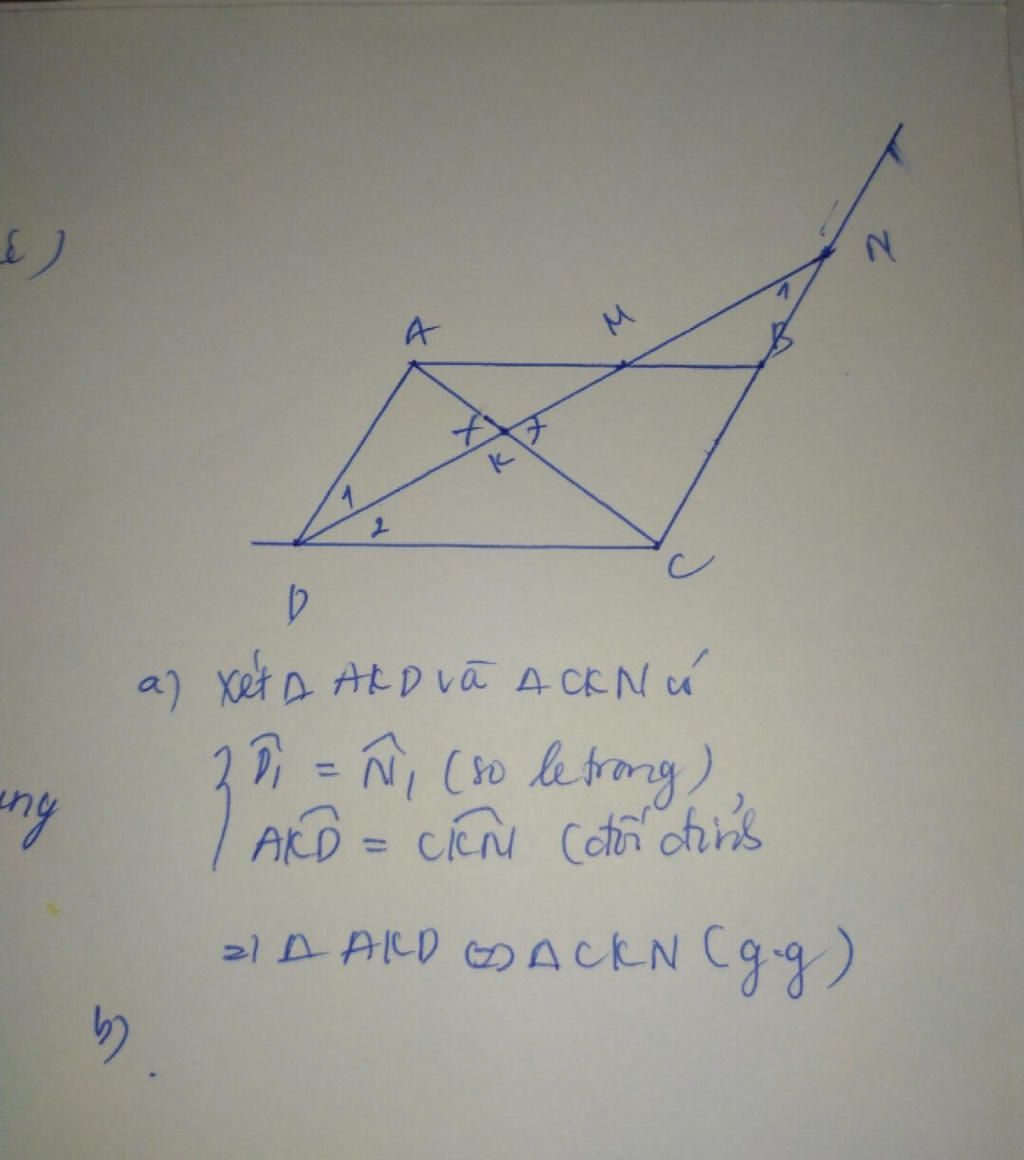 N
1
B
M
A
K
1
2
D
C
a) Xét Δ AKD và Δ CKN có
D̂₁ = N̂₁ (so le trong)
AK̂D = CK̂N (đối đỉnh
=) Δ AKD ∽ Δ CKN (g.g)
b)
ung